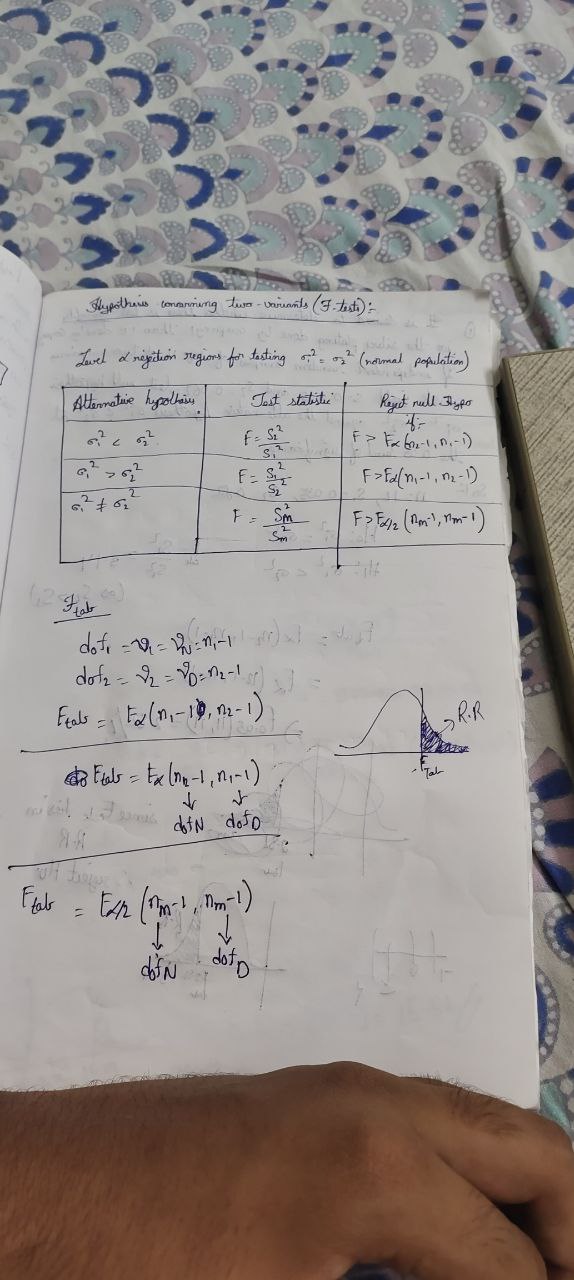 Hypothesis concerning two-variants (F-tests):-
Level α rejection regions for testing σ₁² = σ₂² (normal population)
Alternative hypothesis Test statistic Reject null Hypo if:-
σ₁² < σ₂² F = S₂²/S₁² F > Fα(n₂-1, n₁-1)
σ₁² > σ₂² F = S₁²/S₂² F > Fα(n₁-1, n₂-1)
σ₁² ≠ σ₂² F = S_M²/S_m² F > Fα/2 (n_M-1, n_m-1)
F_tab
dof₁ = ϑ₁ = ϑ_N = n₁-1
dof₂ = ϑ₂ = ϑ_D = n₂-1
F_tab = Fα(n₁-1, n₂-1)
R.R
F_Tab
F_tab = Fα(n₂-1, n₁-1)
↓ ↓
dof N dof D
F_tab = Fα/2 (n_M-1, n_m-1)
↓ ↓
dof N dof D